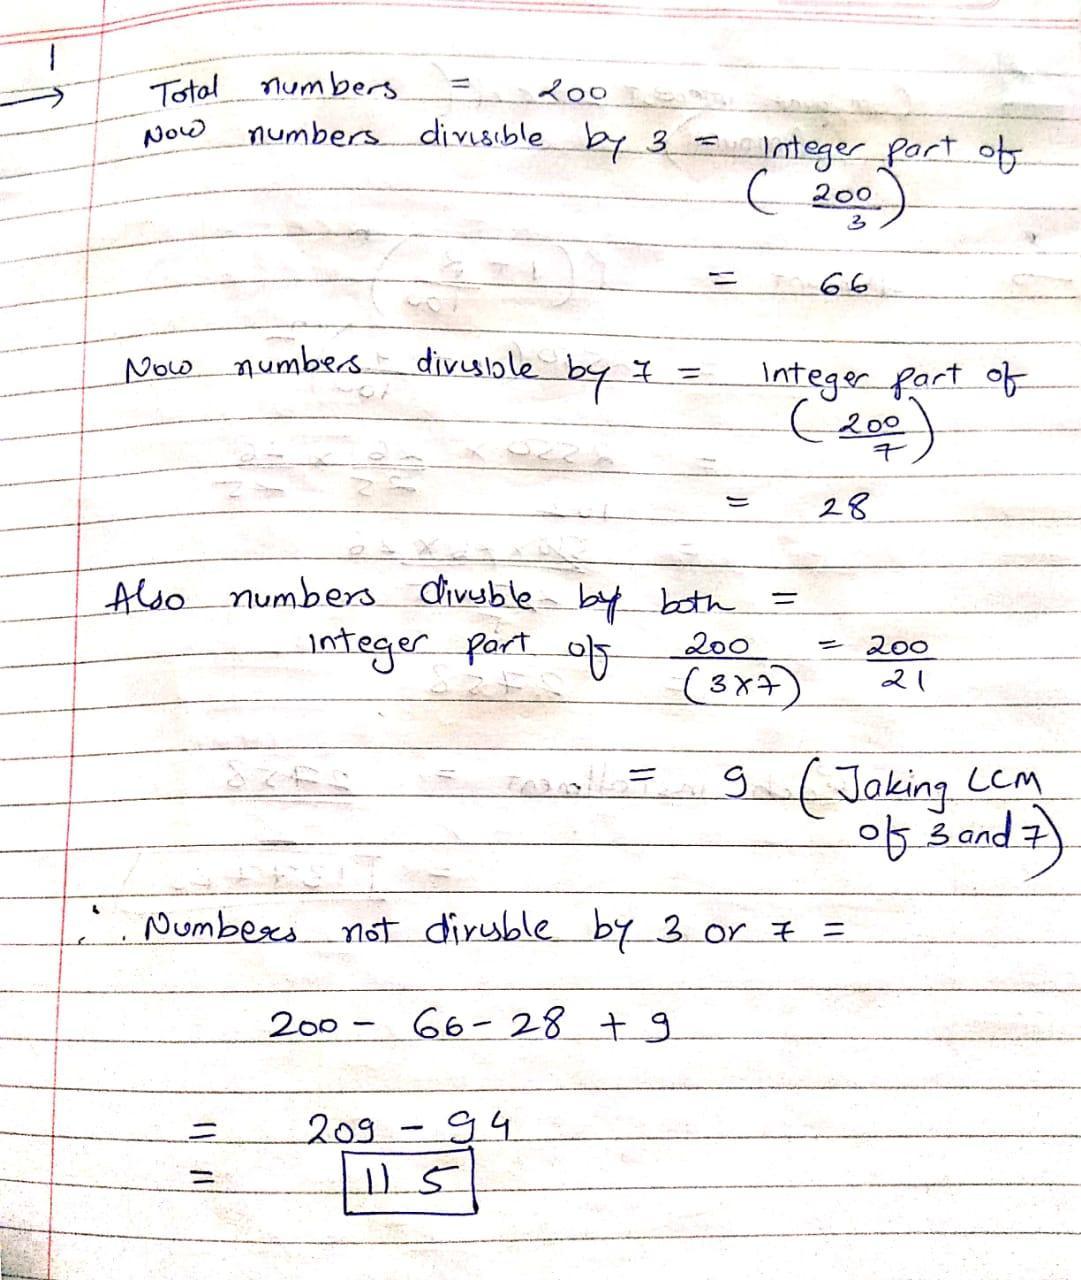 1
Total numbers = 200
Now numbers divisible by 3 = Integer part of
( 200/3 )
= 66
Now numbers divisible by 7 = Integer part of
( 200/7 )
= 28
Also numbers divisble by both =
Integer part of 200/(3x7) = 200/21
= 9 ( Taking LCM
of 3 and 7)
∴ Numbers not divisble by 3 or 7 =
200 - 66 - 28 + 9
= 209 - 94
= 115